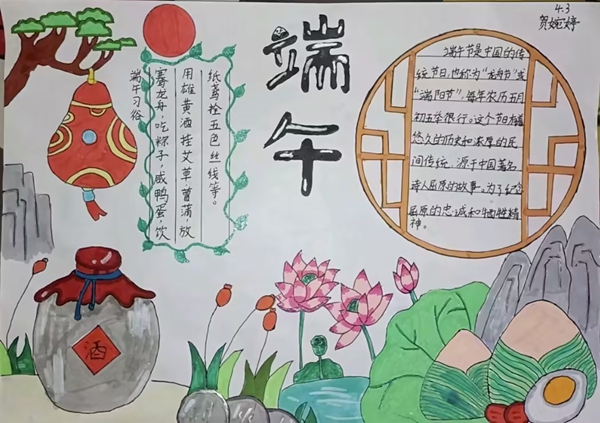 4.3
贺婉婷
端午
端午习俗
赛龙舟,吃粽子,咸鸭蛋,饮
用雄黄酒挂艾草菖蒲,放
纸鸢拴五色丝线等。
端午节是中国的传
统节日,也称为"龙舟节"或
"端阳节"。每年农历五月
初五举很行。这个节
悠久的历史和浓厚的民
间传统,源于中国著名
诗人屈原的故事。为了纪念
屈原的忠诚和牺牲精
神。
酒